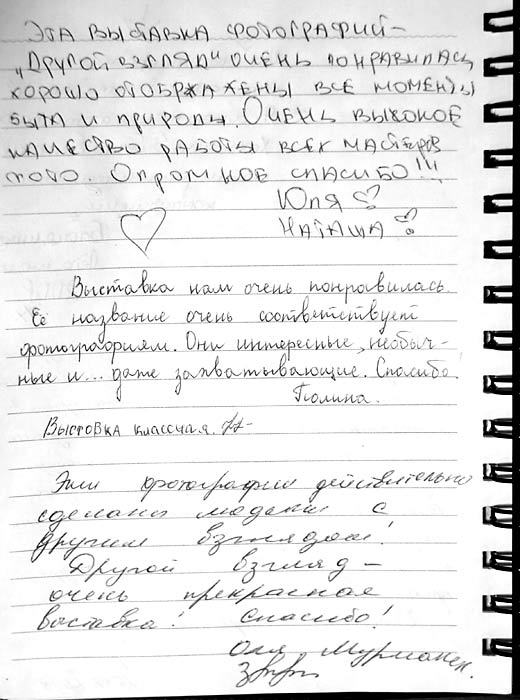 Эта выставка фотографий –
„Другой взгляд" очень понравилась,
хорошо отображены все моменты
быта и природы. Очень высокое
качество работы всех мастеров
фото. Огромное спасибо!!!
Юля
Наташа
Выставка нам очень понравилась.
Её название очень соответствует
фотографиям. Они интересные, необыч-
ные и... даже захватывающие. Спасибо!
Полина.
Выстовка классчая.
Эти фотографии действительно
сделаны людьми с
другим взглядом!
Другой взгляд –
очень прекрасная
выставка! Спасибо!
Оля